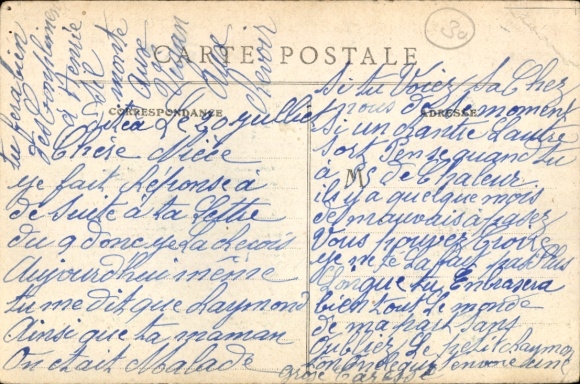 CARTE POSTALE
CORRESPONDANCE
ADRESSE
30
Le 30 Jullie
Chere Niéce
ye fait Réponse à
de suite a ta Lettre
du 9 donc ye La Recois
Aujourd'hui même
tu me dit que Raymond
Ainsi que ta maman
On était Malade
Si tu Voiez sa Chez
nous des moment
Si un rantre L'autre
Sort Pense quand tu
à M de Chaleur
ils y a quelque mois
de mauvais à passez
Vous pouvez Croire
ye ne te La fait pas Plus
Longue tu Embrasera
bien tout Le monde
de ma part Sans
Oublier Le petit Raymon
ton Oncle qui t'envoie une
Grose
tu fera bien
des Complimen
a Henrie
monte
que
au
Revoir